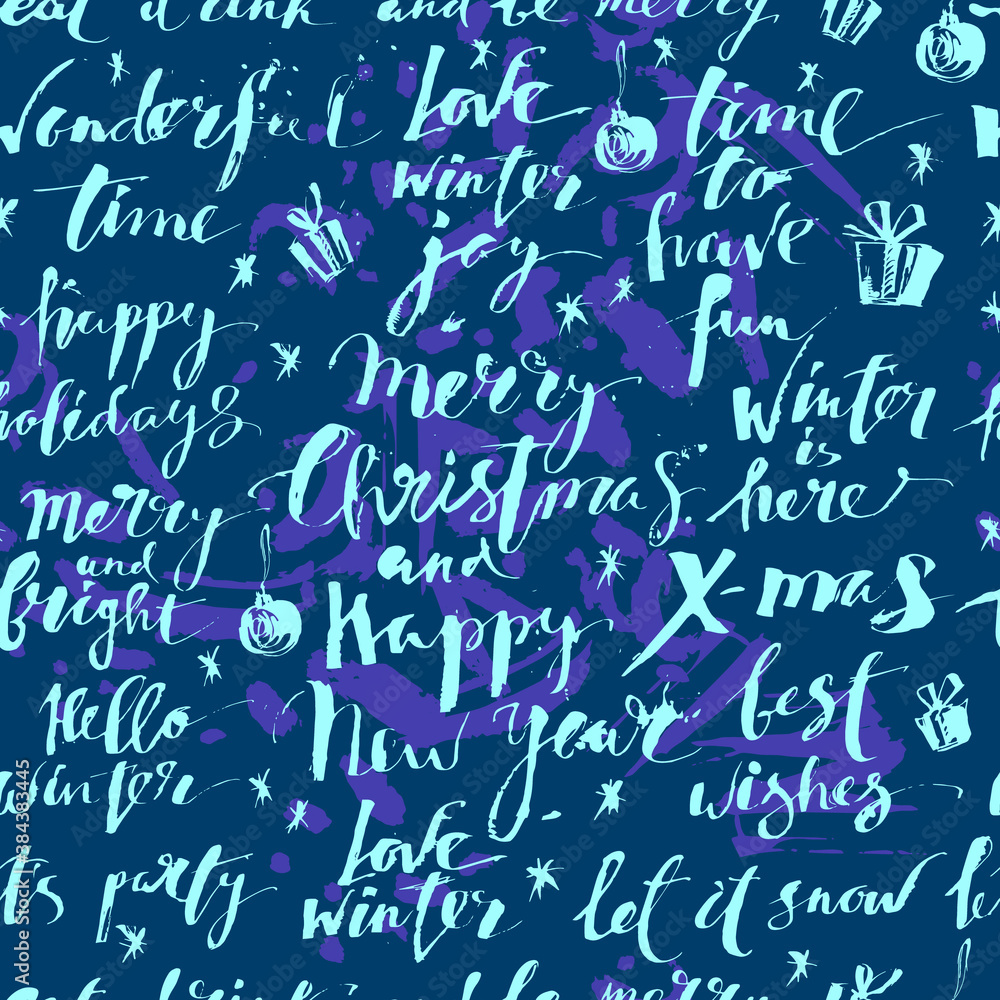 drink and be merry
Wonderful
time
Love
winter
joy
time
to
have
fun
happy
holidays
merry
and
bright
Merry
Christmas
and
Happy
New year
Winter
is
here
X-mas
best
wishes
Hello
winter
Love
winter
party
let it snow
Adobe Stock | #384383445